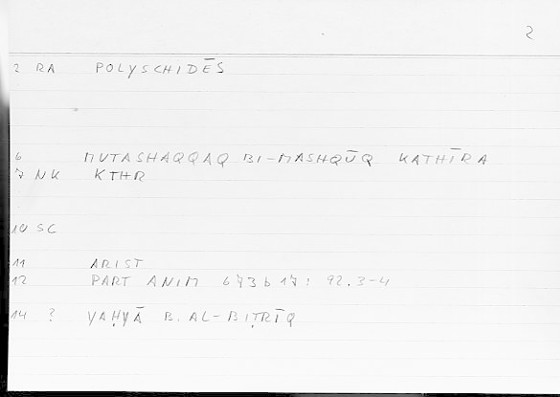 2
2 RA POLYSCHIDĒS
6 MUTASHAQQAQ BI-MASHQŪQ KATHĪRA
7 NK KTHR
10 SC
11 ARIST
12 PART ANIM 673b17: 92.3-4
14 ? YAḤYĀ B. AL-BIṬRĪQ